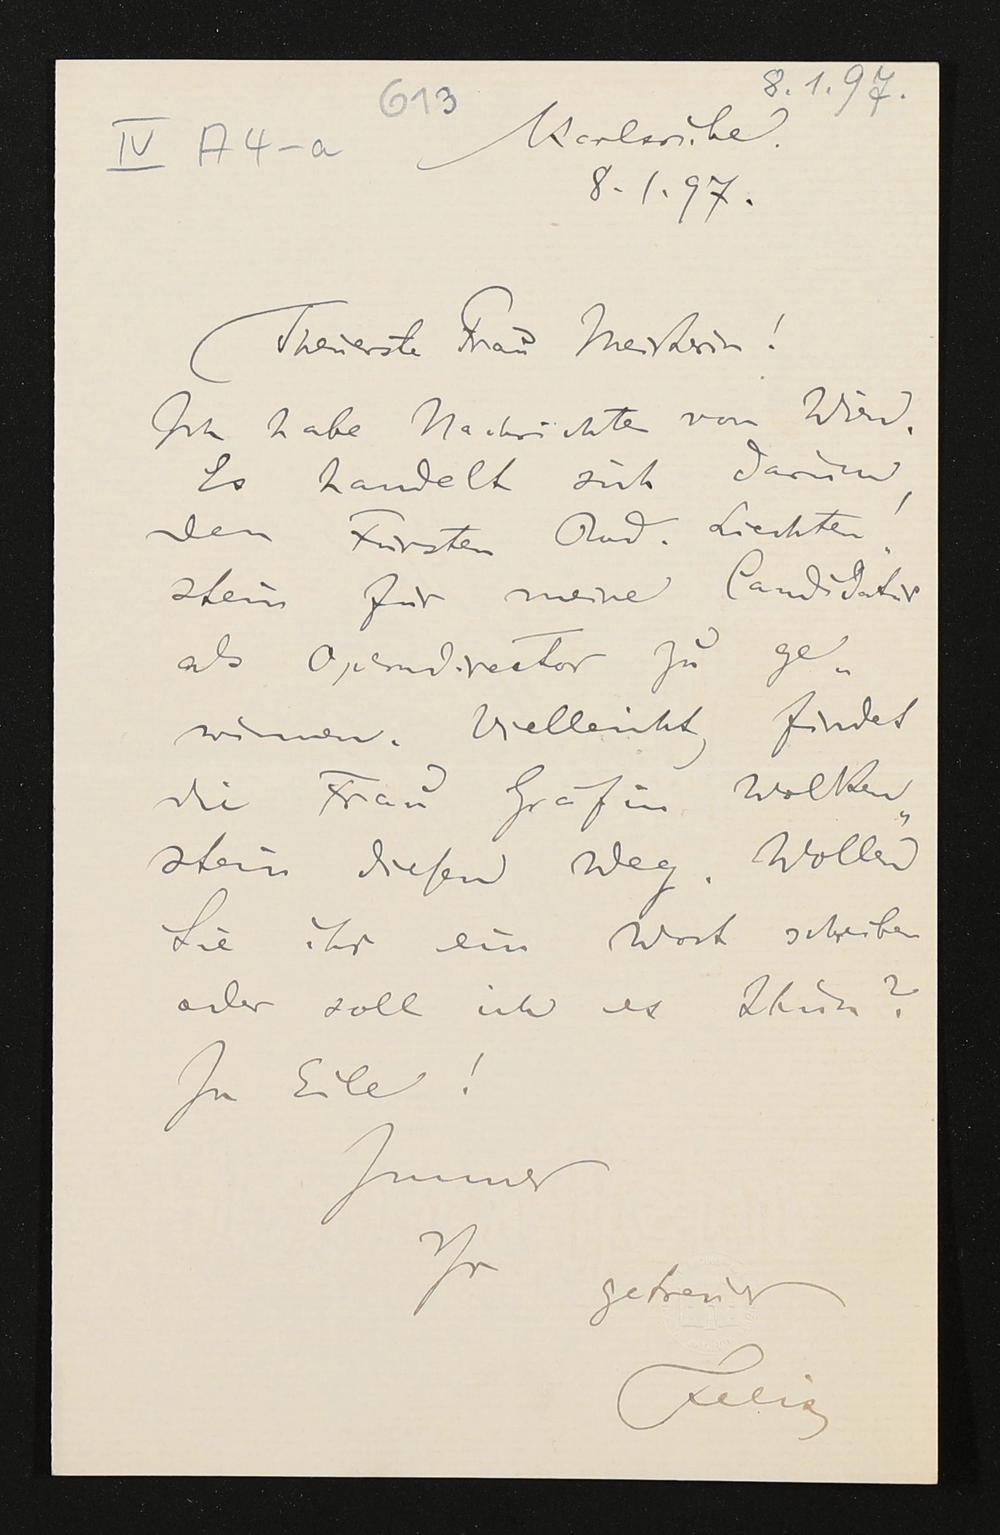 613
8.1.97.
IV A4-a
Karlsruhe.
8.1.97.
Theuerste Frau Meisterin!
Ich habe Nachrichten von Wien.
Es handelt sich darum,
den Fürsten Rud. Liechten„
stein für meine Candidatur
als Operndirector zu ge„
winnen. Vielleicht findet
die Frau Gräfin Wolken„
stein diesen Weg. Wollen
Sie ihr ein Wort schreiben
oder soll ich es thun?
In Eile!
Immer
Ihr
getreuer
Felix